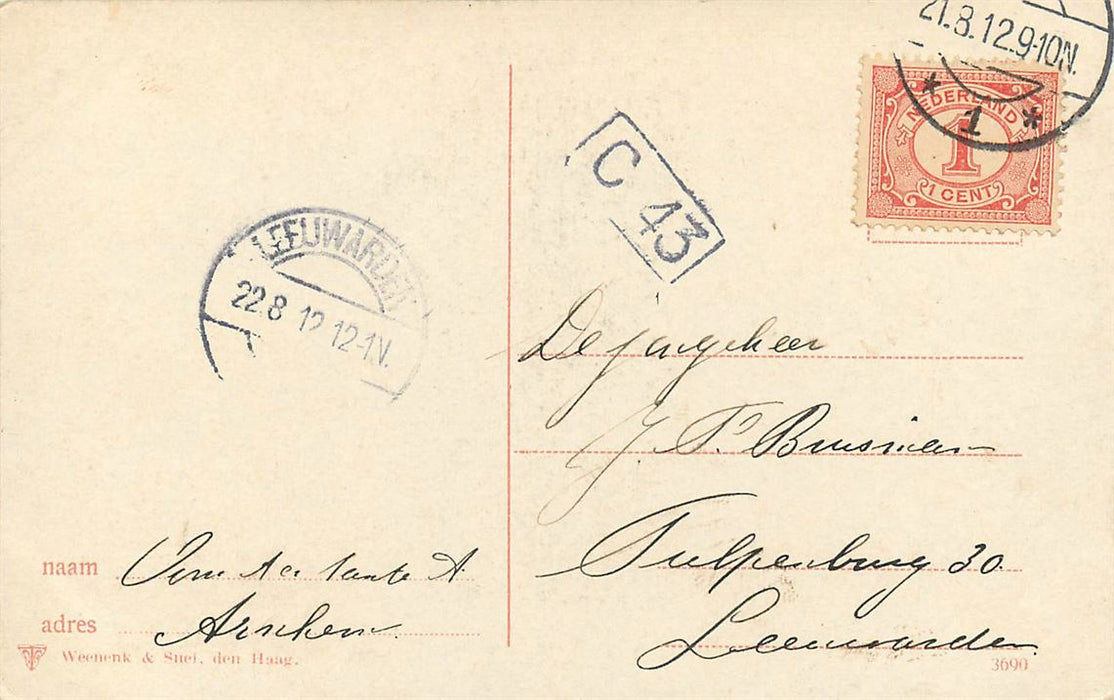 21.8.12.9-10N.
* 1 *
NEDERLAND
1
1 CENT
C 43
LEEUWARDEN
22.8 12 12-1N.
De jongeheer
J. P. Brusinea
Tulpenburg 30.
Leeuwarden
naam Oom tante A
adres Arnhem.
Weenenk & Snel, den Haag.
3690